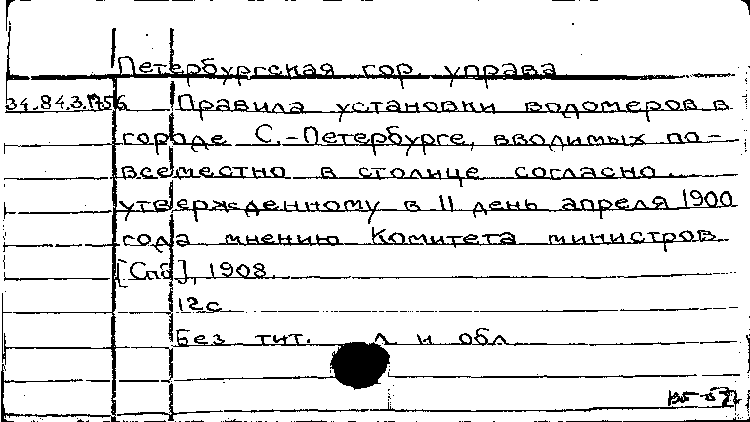 Петербургская гор. управа
34.84.3.1756 Правила установки водомеров в
городе С.-Петербурге, вводимых по-
всеместно в столице согласно...
утвержденному в 11 день апреля 1900
года мнению Комитета министров
[Спб], 1908.
12с.
Без тит. л. и обл.